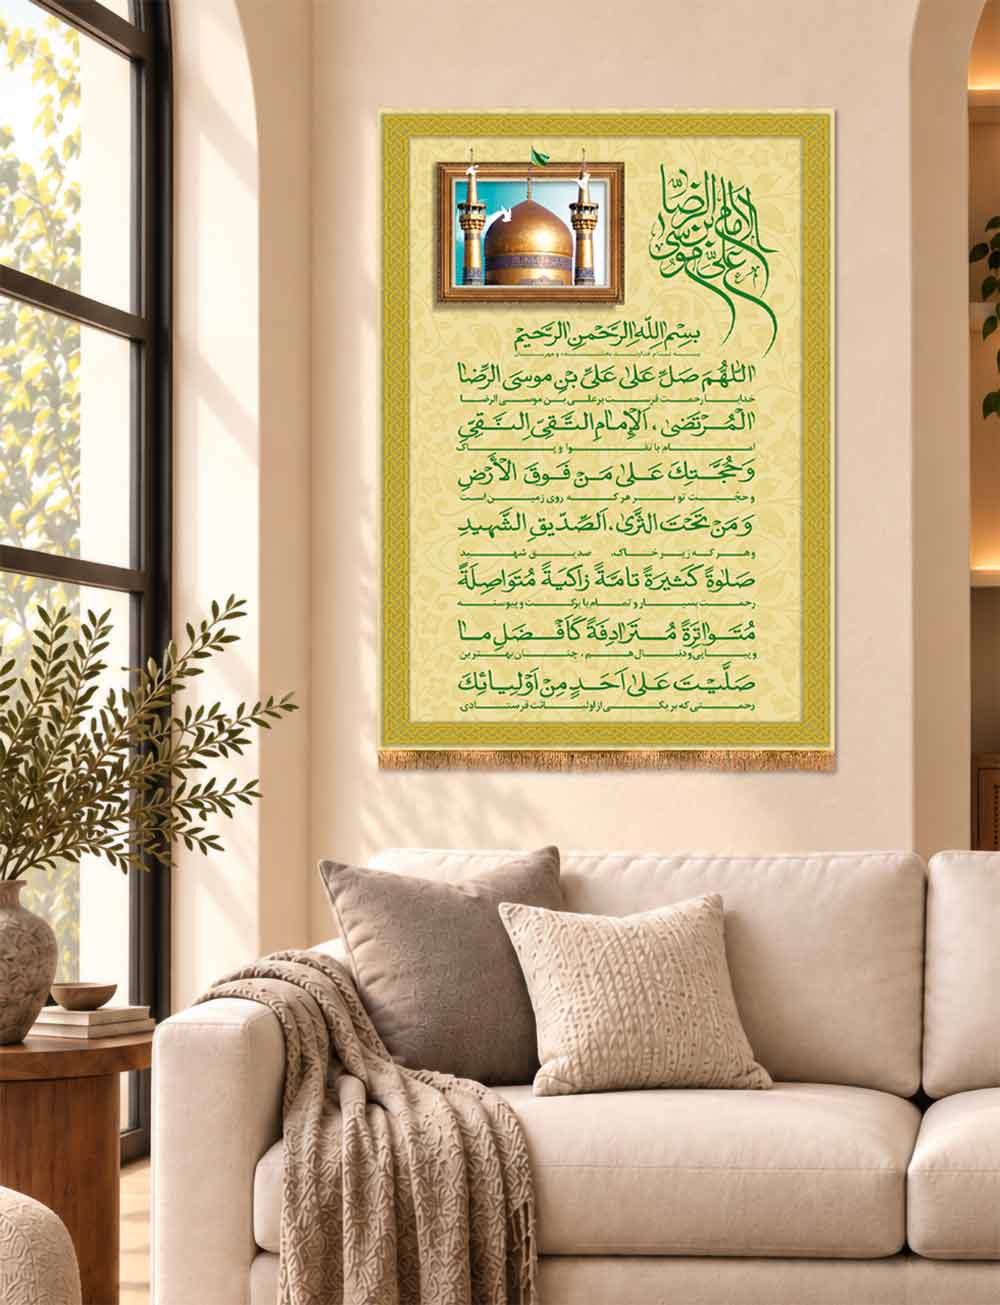 الإمام علي بن موسی الرضا
بِسْمِ اللّٰهِ الرَّحْمنِ الرَّحيمْ
به نام خداوند بخشنده و مهربان
اَللّٰهُمَ صَلِّ عَلىٰ عَلىِّ بْنِ موسَى الرِّضا
خدایا رحمت فرست بر علی بن موسی الرضا
الْمُرْتَضىٰ ، اَلْإمامِ التَّقِىِّ النَّقِىِّ
امام با تقوا و پاک
وَ حُجَّتِكَ عَلىٰ مَنْ فَوقَ الْأَرْضِ
و حجت تو بر هر که روی زمین است
وَ مَنْ تَحْتَ الثَّرىٰ، اَلصِّدّيقِ الشَّهيدِ
و هر که زیر خاک، صدیق شهید
صَلوٰةً كَثيرَةً تامَةً زاكِيَةً مُتَواصِلَةً
رحمت بسیار و تمام با برکت و پیوسته
مُتَواتِرَةً مُتَرادِفَةً كَأَفْضَلِ ما
و پیاپی و دنبال هم ، چنان بهترین
صَلَّيْتَ عَلىٰ اَحَدٍ مِنْ اَوْلِيائِكَ
رحمتی که بر یکی از اولیائت فرستادی